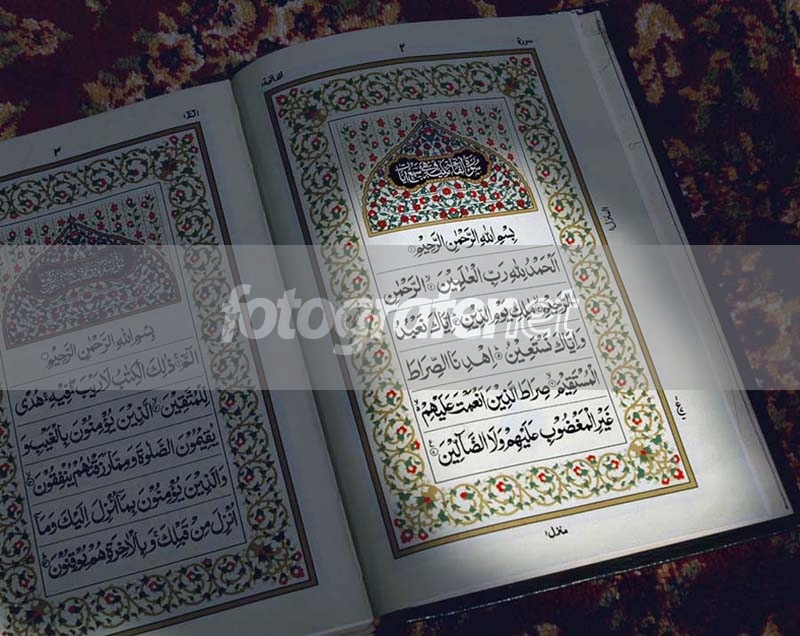 سورة
٢
الفاتحة
بِسْمِ اللّٰهِ الرَّحْمٰنِ الرَّحِيْمِ
اَلْحَمْدُ لِلّٰهِ رَبِّ الْعٰلَمِيْنَ الرَّحْمٰنِ
الرَّحِيْمِ مٰلِكِ يَوْمِ الدِّيْنِ اِيَّاكَ نَعْبُدُ
وَاِيَّاكَ نَسْتَعِيْنُ اِهْدِنَا الصِّرَاطَ
الْمُسْتَقِيْمَ صِرَاطَ الَّذِيْنَ اَنْعَمْتَ عَلَيْهِمْ
غَيْرِ الْمَغْضُوْبِ عَلَيْهِمْ وَلَا الضَّآلِّيْنَ
منزل ١
٣
بِسْمِ اللّٰهِ الرَّحْمٰنِ الرَّحِيْمِ
الٓمّٓ ذٰلِكَ الْكِتٰبُ لَا رَيْبَ فِيْهِ هُدًى
لِّلْمُتَّقِيْنَ الَّذِيْنَ يُؤْمِنُوْنَ بِالْغَيْبِ وَ
يُقِيْمُوْنَ الصَّلٰوةَ وَمِمَّا رَزَقْنٰهُمْ يُنْفِقُوْنَ
وَالَّذِيْنَ يُؤْمِنُوْنَ بِمَآ اُنْزِلَ اِلَيْكَ وَمَآ
اُنْزِلَ مِنْ قَبْلِكَ وَبِالْاٰخِرَةِ هُمْ يُوْقِنُوْنَ
fotografer.net